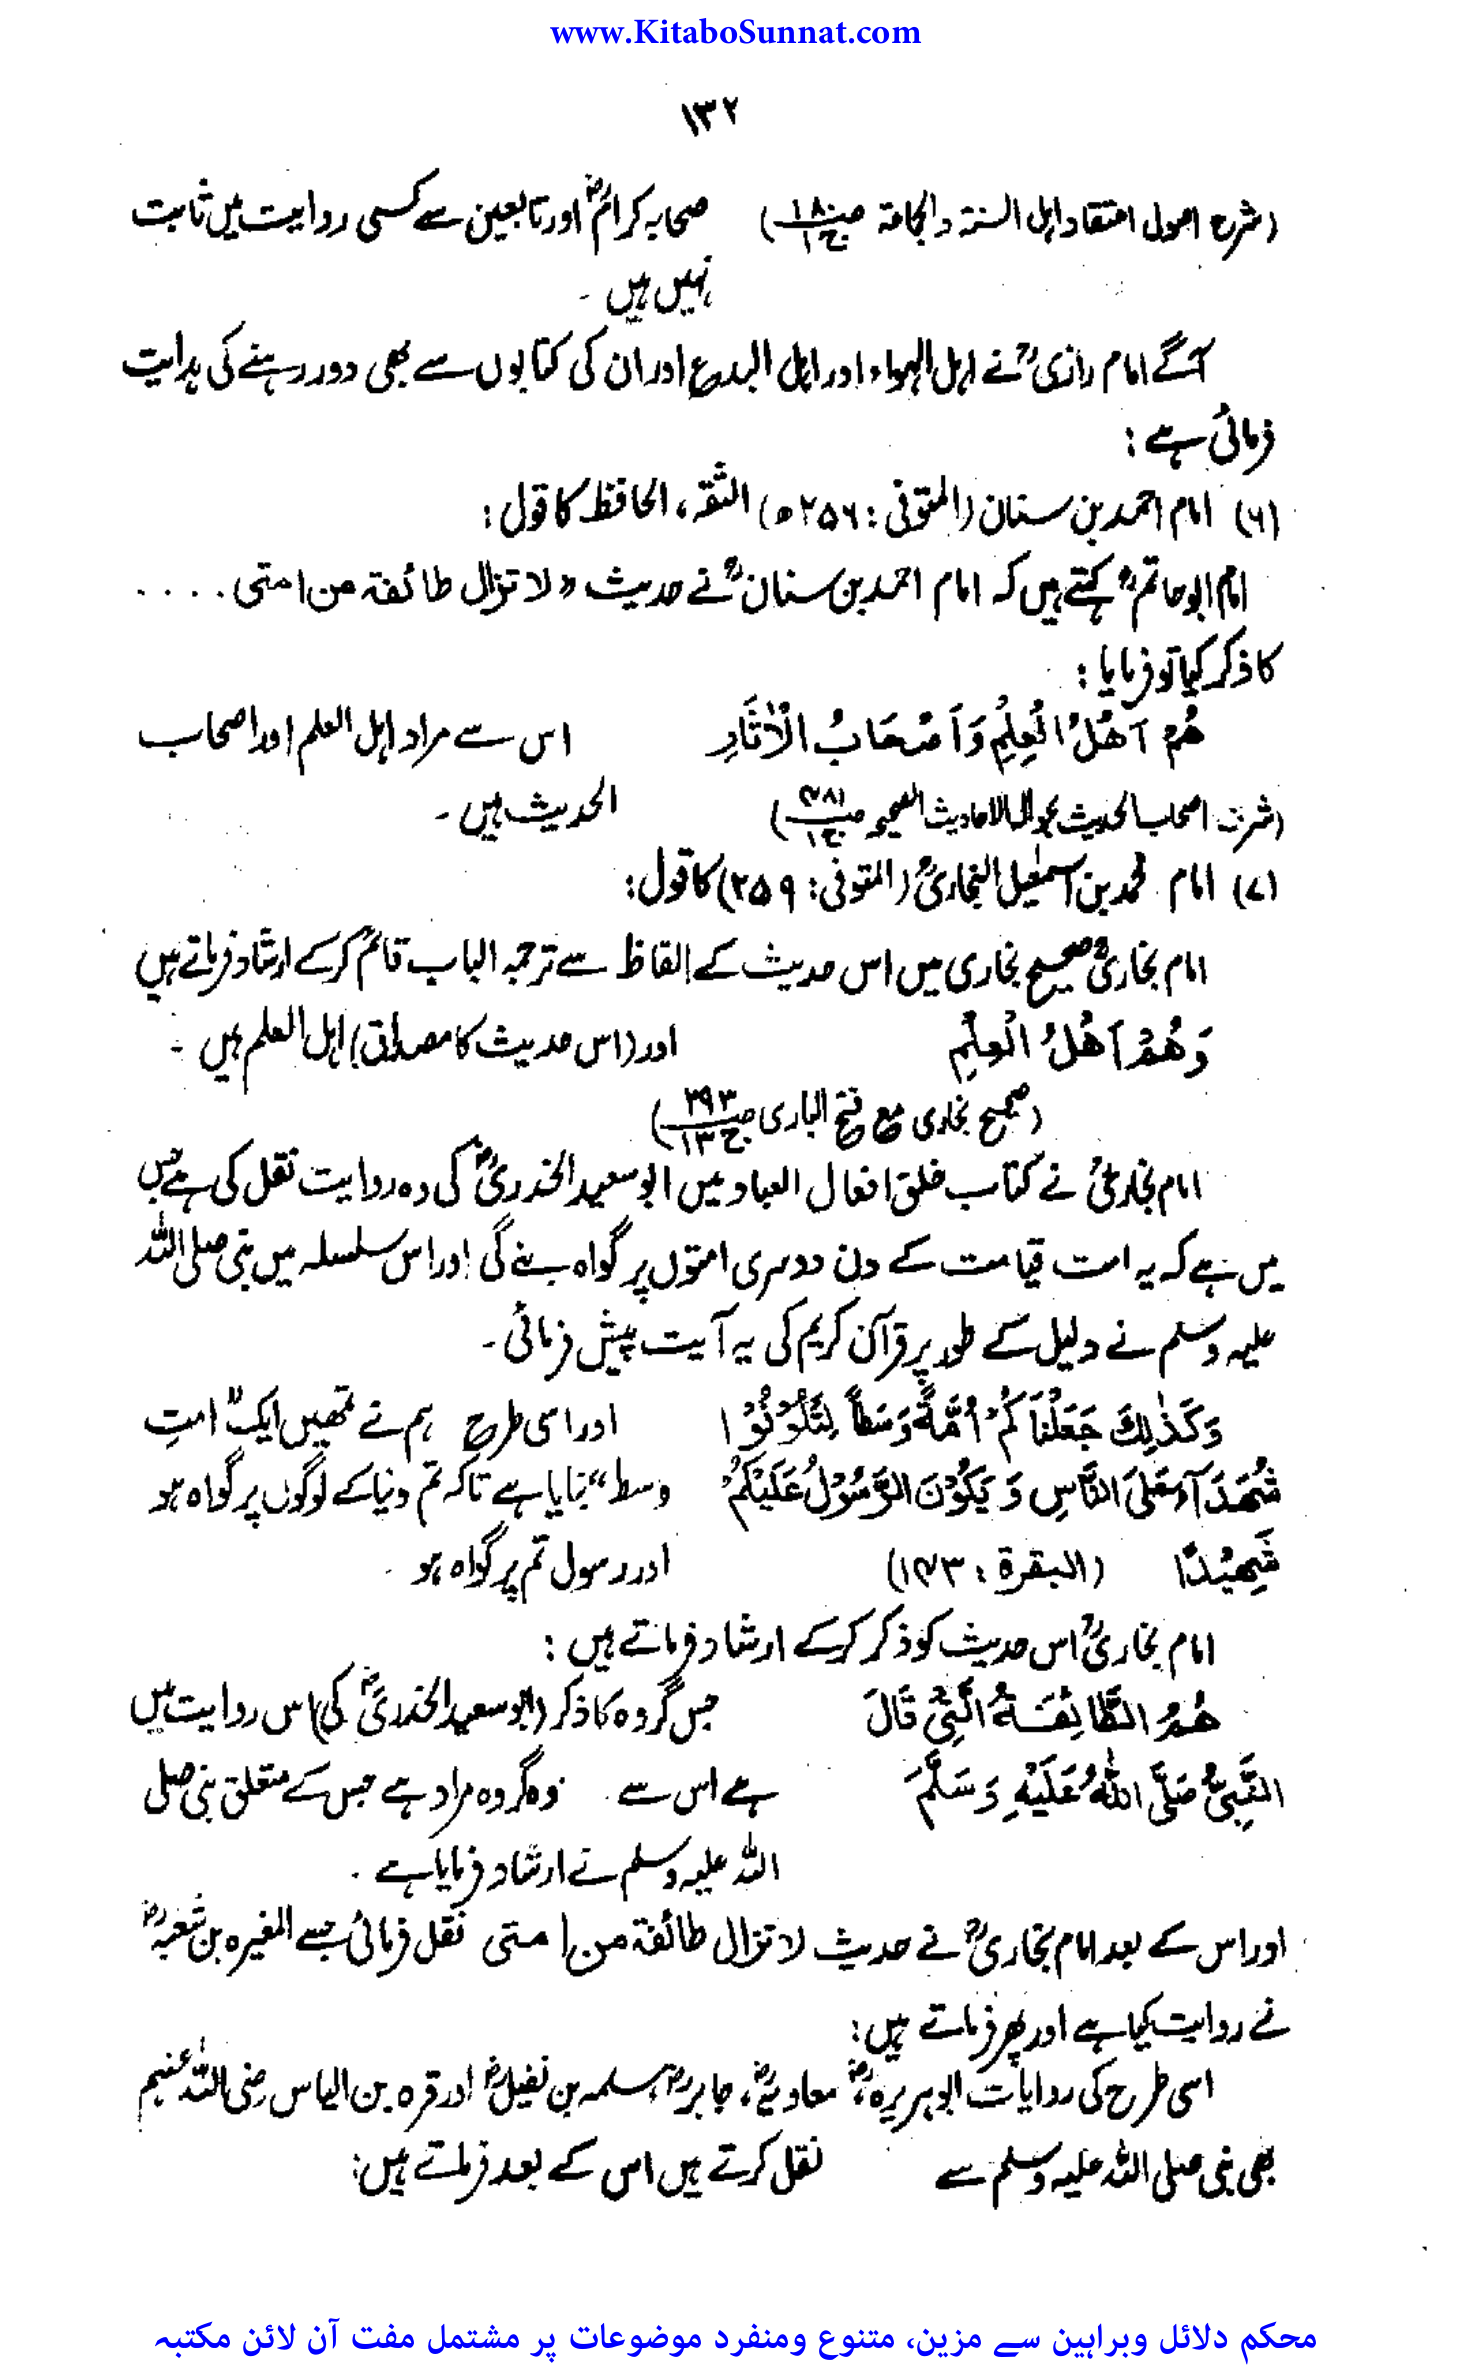 www.KitaboSunnat.com
۱۳۲
(شرح اصول اعتقاد اہل السنۃ والجماعۃ ص۱۸۰ ج۱) صحابہ کرامؓ اور تابعین سے کسی روایت میں ثابت
نہیں ہیں ۔
آگے امام رازیؒ نے اہل الہواء اور اہل البدع اور ان کی کتابوں سے بھی دور رہنے کی ہدایت
فرمائی ہے :
(۶) امام احمد بن سنان (المتوفی : ۲۵۶ھ) الثقہ ، الحافظ کا قول :
امام ابوحاتمؒ کہتے ہیں کہ امام احمد بن سنانؒ نے حدیث «لا تزال طائفۃ من امتی . . . .
کا ذکر کیا تو فرمایا :
هُمْ اَهْلُ الْعِلْمِ وَاَصْحَابُ الْاٰثَارِ اس سے مراد اہل العلم اور اصحاب
(شرف اصحاب الحدیث بحوالہ الاحادیث الصحیحہ ص۴۸۱ ج۱) الحدیث ہیں ۔
(۷) امام محمد بن اسمٰعیل البخاریؒ (المتوفی : ۲۵۹) کا قول :
امام بخاریؒ صحیح بخاری میں اس حدیث کے الفاظ سے ترجمۃ الباب قائم کرکے ارشاد فرماتے ہیں
وَهُمْ اَهْلُ الْعِلْمِ اور (اس حدیث کا مصداق) اہل العلم ہیں ۔
(صحیح بخاری مع فتح الباری ص۲۹۳ ج۱۳)
امام بخاریؒ نے کتاب خلق افعال العباد میں ابوسعید الخدریؓ کی وہ روایت نقل کی ہے جس
میں ہے کہ یہ امت قیامت کے دن دوسری امتوں پر گواہ بنے گی اور اس سلسلہ میں نبی صلی اللہ
علیہ وسلم نے دلیل کے طور پر قرآن کریم کی یہ آیت پیش فرمائی ۔
وَكَذٰلِكَ جَعَلْنَاكُمْ اُمَّةً وَسَطاً لِتَكُوْنُوْا اور اسی طرح ہم نے تمھیں ایک "امتِ
شُهَدَآءَ عَلَى النَّاسِ وَ يَكُوْنَ الرَّسُوْلُ عَلَيْكُمْ وسط" بنایا ہے تاکہ تم دنیا کے لوگوں پر گواہ ہو
شَهِيْدًا (البقرۃ : ۱۴۳) اور رسول تم پر گواہ ہو .
امام بخاریؒ اس حدیث کو ذکر کرکے ارشاد فرماتے ہیں :
هُمُ الطَّائِفَةُ الَّتِيْ قَالَ جس گروہ کا ذکر (ابوسعید الخدریؓ کی) اس روایت میں
النَّبِيُّ صَلَّى اللهُ عَلَيْهِ وَسَلَّمَ ہے اس سے وہ گروہ مراد ہے جس کے متعلق نبی صلی
اللہ علیہ وسلم نے ارشاد فرمایا ہے .
اور اس کے بعد امام بخاریؒ نے حدیث لا تزال طائفۃ من امتی نقل فرمائی جسے المغیرہ بن شعبہؓ
نے روایت کیا ہے اور پھر فرماتے ہیں :
اسی طرح کی روایات ابوہریرہؓ، معاویہؓ، جابرؓ، سلمہ بن نفیلؓ اور قرہ بن الیاس رضی اللہ عنہم
بھی نبی صلی اللہ علیہ وسلم سے نقل کرتے ہیں اس کے بعد فرماتے ہیں :
محکم دلائل وبراہین سے مزین، متنوع ومنفرد موضوعات پر مشتمل مفت آن لائن مکتبہ